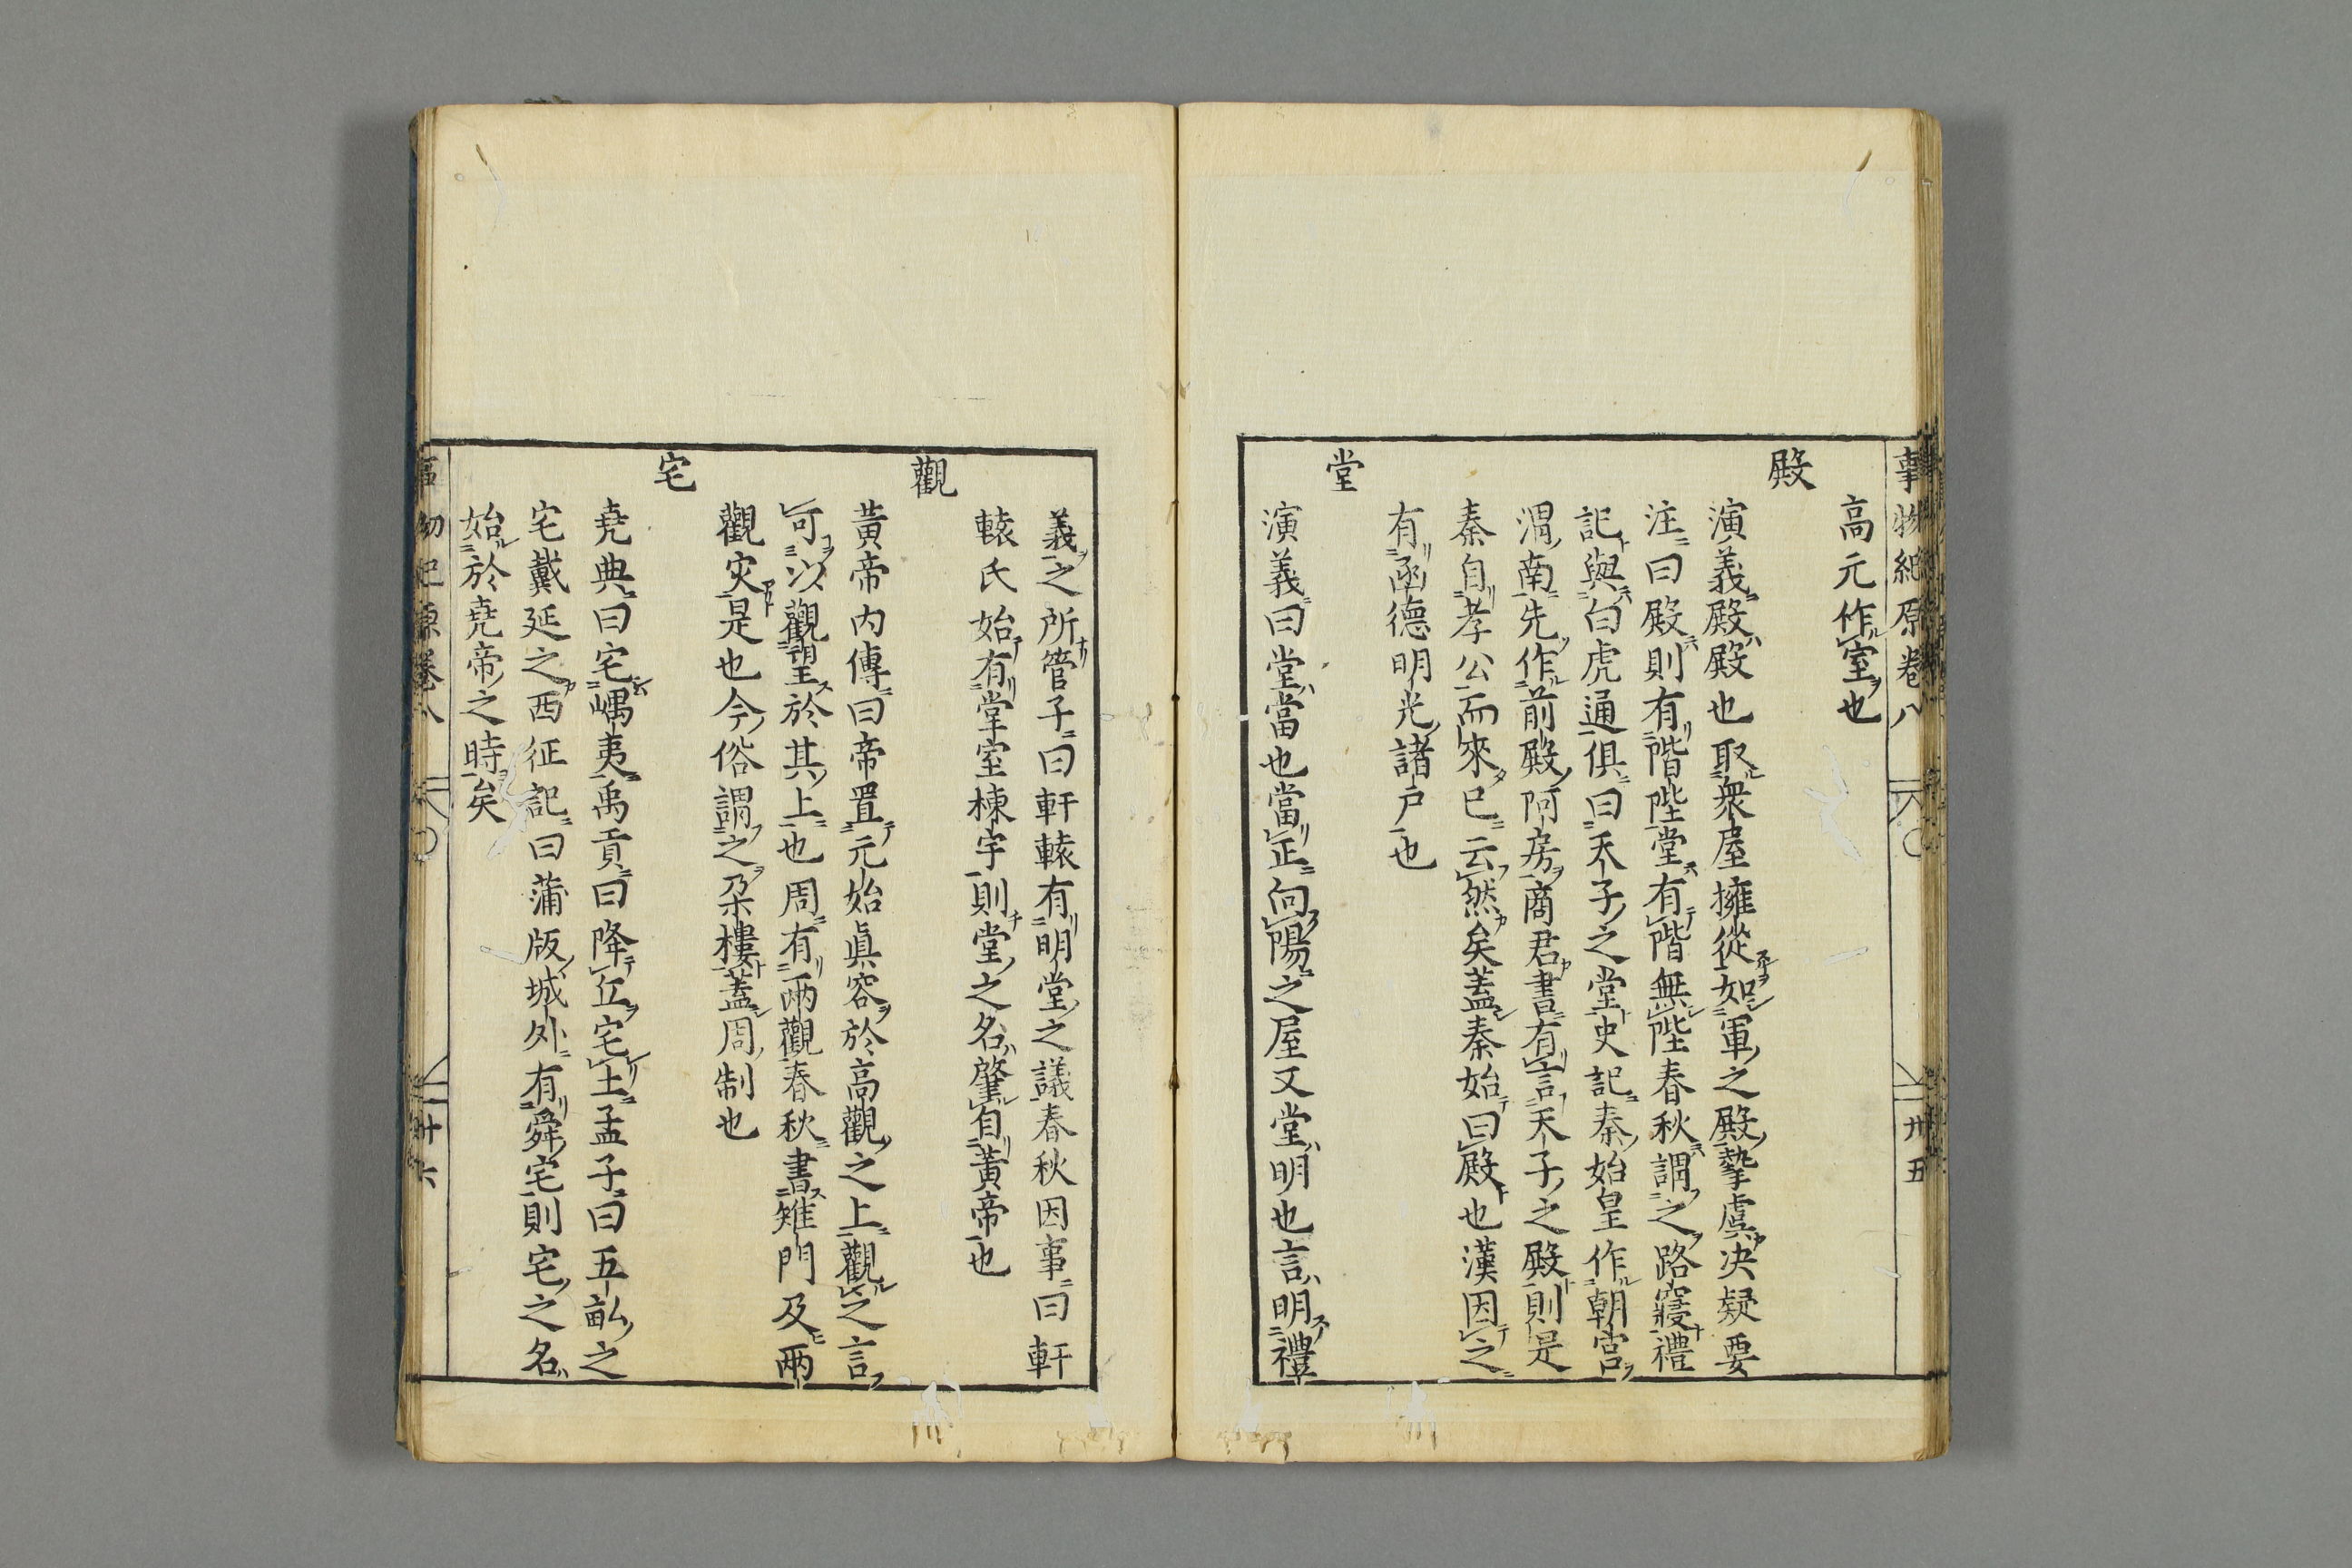 事物紀原卷八
卅五
高元作室也
殿
演義殿殿也取衆屋擁從如軍之殿摯虞决疑要
注曰殿則有階陛堂有階無陛春秋謂之路寢禮
記與白虎通俱曰天子之堂史記秦始皇作朝宮
渭南先作前殿阿房商君書有言天子之殿則是
秦自孝公而來已云然矣蓋秦始曰殿也漢因之
有函德明光諸戸也
堂
演義曰堂當也當正向陽之屋又堂明也言明禮
義之所管子曰軒轅有明堂之議春秋因事曰軒
轅氏始有堂室棟宇則堂之名肇自黃帝也
觀
黃帝內傳曰帝置元始眞容於高觀之上觀之言
可以觀望於其上也周有兩觀春秋書雉門及兩
觀灾是也今俗謂之朶樓蓋周制也
宅
堯典曰宅嵎夷禹貢曰降丘宅土孟子曰五畝之
宅戴延之西征記曰蒲版城外有舜宅則宅之名
始於堯帝之時矣
事物紀原卷八
卅六